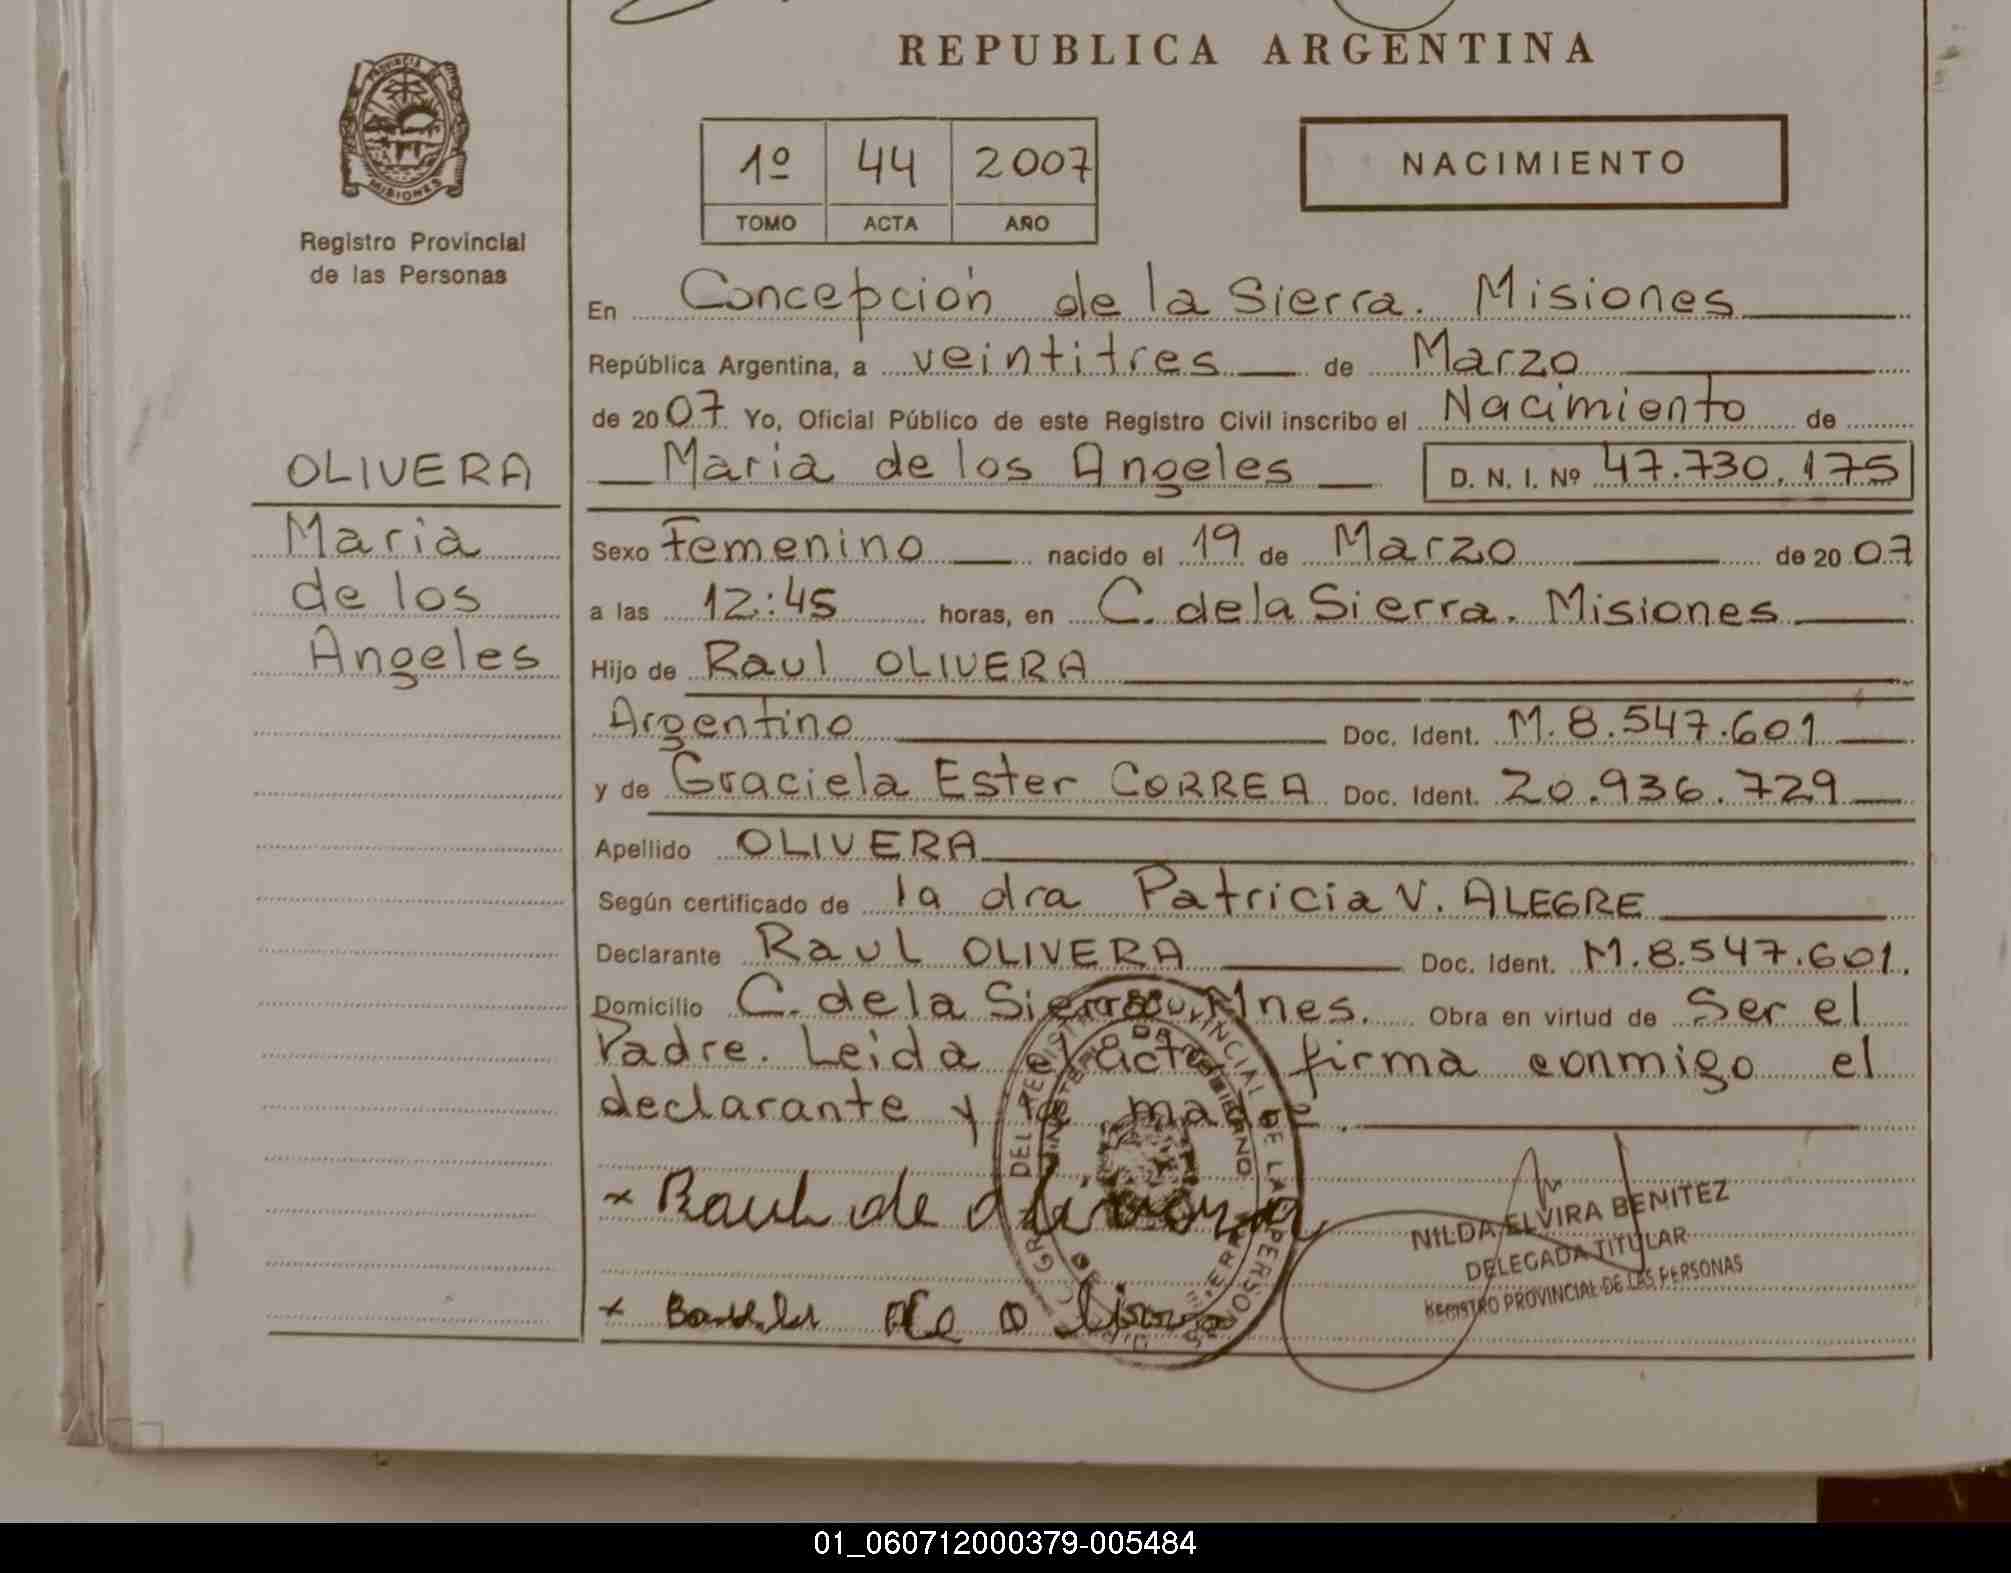 REPUBLICA ARGENTINA
PROVINCIA DE
MISIONES
Registro Provincial
de las Personas
1º 44 2007
TOMO ACTA AÑO
NACIMIENTO
En Concepción de la Sierra. Misiones
República Argentina, a veintitres de Marzo
de 2007 Yo, Oficial Público de este Registro Civil inscribo el Nacimiento de
Maria de los Angeles D. N. I. Nº 47.730.175
OLIVERA
Maria
de los
Angeles
Sexo Femenino nacido el 19 de Marzo de 2007
a las 12:45 horas, en C. de la Sierra. Misiones
Hijo de Raul OLIVERA
Argentino Doc. Ident. M.8.547.601
y de Graciela Ester CORREA Doc. Ident. 20.936.729
Apellido OLIVERA
Según certificado de la dra Patricia V. ALEGRE
Declarante Raul OLIVERA Doc. Ident. M.8.547.601.
Domicilio C. de la Sierra. Mnes. Obra en virtud de Ser el
Padre. Leida el acta firma conmigo el
declarante y la madre.
Raul de olivera
NILDA ELVIRA BENITEZ
DELEGADA TITULAR
REGISTRO PROVINCIAL DE LAS PERSONAS
01_060712000379-005484